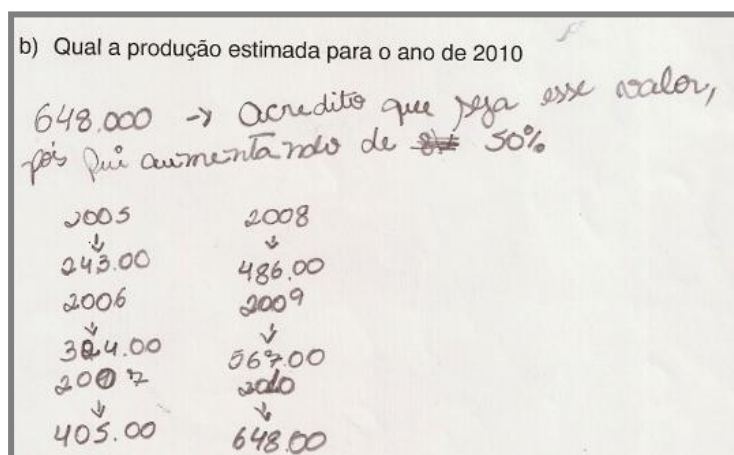 b) Qual a produção estimada para o ano de 2010
648.000 → Acredito que seja esse valor,
pois fui aumentando de 50%
2005
↓
243.00
2006
↓
324.00
2007
↓
405.00
2008
↓
486.00
2009
↓
567.00
2010
↓
648.00